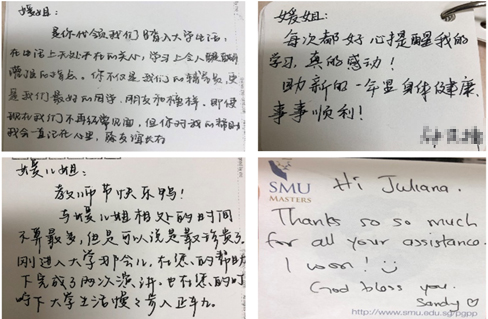 媛姐:
是你带领我们踏入大学生活,
在生活上无处不在的关心,学习上令人
你不仅是我们的辅导员,更
是我们最好的同学、朋友和榜样。即使
现在我们不再经常见面,但你对我的帮助
我会一直记在心里,
媛姐:
每次都好心提醒我的
学习,真的感动!
助新的一年里身体健康,
事事顺利!
媛儿姐:
教师节快乐鸭!
与媛儿姐相处的时间
不算最多,但是可以说是最珍贵了。
刚进入大学那会儿,在您的帮助
下完成了两次演讲。也在您的叮
咛下大学生活慢慢步入正轨。
SMU
MASTERS
Hi Juliana.
Thanks so so much
for all your assistance.
I won!
God bless you.
Sandy
http://www.smu.edu.sg/pgpp